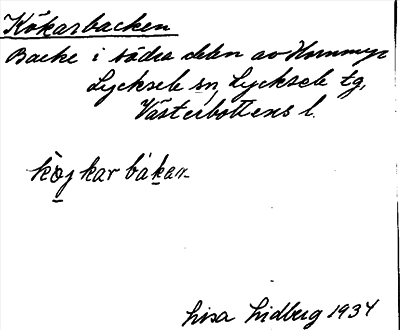 Kökarbacken
Backe i södra delen av Hornmyr
Lycksele sn, Lycksele tg,
Västerbottens l.
kö̀j kar bákan
Lisa Lidberg 1934